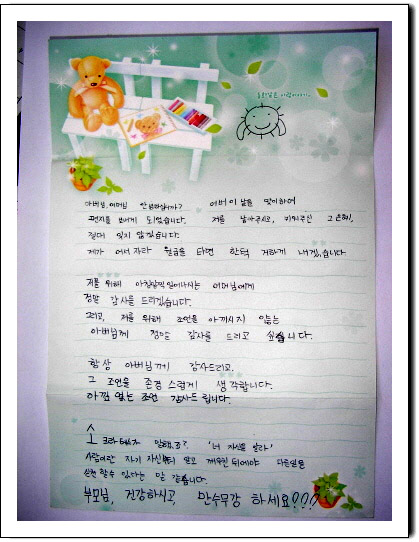 아버님, 어머님 안녕하십니까? 어버이날을 맞이하여
편지를 보내게 되었습니다. 저를 낳아주시고, 키워주신 그 은혜,
절대 잊지 않겠습니다.
제가 어서 자라 월급을 타면 한턱 거하게 내겠습니다
저를 위해 아침일찍 일어나시는 어머님에게
정말 감사를 드리겠습니다.
그리고, 저를 위해 조언을 아끼시지 않는
아버님께 정말 감사를 드리고 싶습니다.
항상 아버님께 감사드리고,
그 조언을 존경스럽게 생각합니다.
아낌 없는 조언 감사드립니다.
소크라테스가 말했죠? '너 자신을 알라'
사람이란 자기 자신부터 알고 깨우친 뒤에야 다른일을
실천 할수 있다는 말 같습니다.
부모님, 건강하시고, 만수무강 하세요???